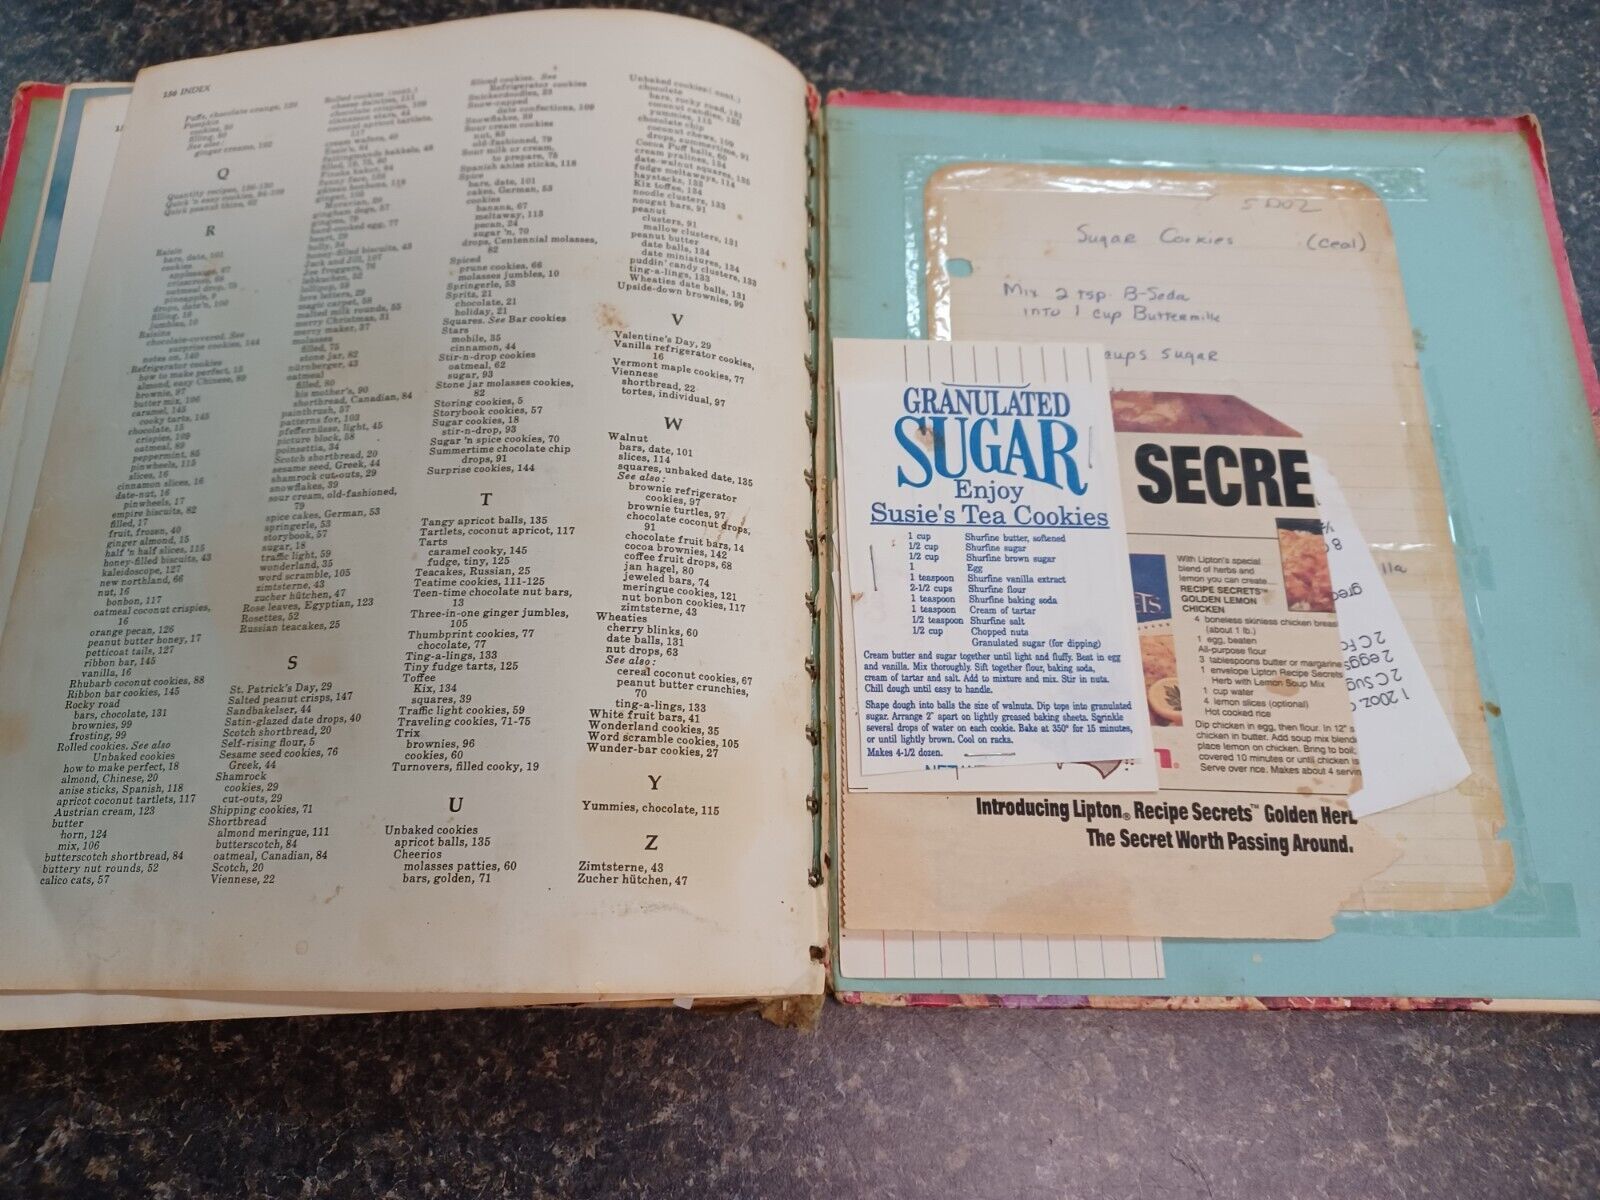 156 INDEX
Puffs, chocolate orange, 126
Pumpkin
cookies, 50
filling, 50
See also:
ginger creams, 102
Q
Quantity recipes, 126-130
Quick 'n easy cookies, 84-109
Quick peanut thins, 62
R
Raisin
bars, date, 101
cookies
applesauce, 67
crisscross, 68
oatmeal drop, 73
pineapple, 9
drops, date'n, 100
filling, 16
jumbles, 10
Raisins
chocolate-covered. See
surprise cookies, 144
notes on, 140
Refrigerator cookies
how to make perfect, 15
almond, easy Chinese, 89
brownie, 97
butter mix, 106
caramel, 145
cooky tarts, 145
chocolate, 15
crispies, 109
oatmeal, 89
peppermint, 85
pinwheels, 115
slices, 16
cinnamon slices, 16
date-nut, 16
pinwheels, 17
empire biscuits, 82
filled, 17
fruit, frozen, 40
ginger almond, 15
half 'n half slices, 115
honey-filled biscuits, 43
kaleidoscope, 127
new northland, 66
nut, 16
bonbon, 117
oatmeal coconut crispies,
16
orange pecan, 126
peanut butter boney, 17
petticoat tails, 127
ribbon bar, 145
vanilla, 16
Rhubarb coconut cookies, 88
Ribbon bar cookies, 145
Rocky road
bars, chocolate, 131
brownies, 99
frosting, 99
Rolled cookies. See also
Unbaked cookies
how to make perfect, 18
almond, Chinese, 20
anise sticks, Spanish, 118
apricot coconut tartlets, 117
Austrian cream, 123
butter
horn, 124
mix, 106
butterscotch shortbread, 84
buttery nut rounds, 52
calico cats, 57
Rolled cookies (cont.)
cheese dainties, 111
chocolate crispies, 109
cinnamon stars, 44
coconut apricot tartlets,
117
cream wafers, 49
Essie's, 81
fattigmands bakkels, 48
filled, 75, 76, 80
Finska kakor, 84
funny face, 128
gâteau bonbons, 118
ginger, 108
Moravian, 29
gingham dogs, 57
gingies, 79
hand-cooked egg, 77
heart, 29
holly, 34
honey-filled biscuits, 43
Jack and Jill, 107
Joe froggers, 76
lebkuchen, 52
lollipop, 59
love letters, 29
magic carpet, 58
malted milk rounds, 55
merry Christmas, 31
merry maker, 37
molasses
filled, 75
stone jar, 82
nürnberger, 43
oatmeal
filled, 80
his mother's, 90
shortbread, Canadian, 84
paintbrush, 57
patterns for, 103
pfeffernüsse, light, 45
picture block, 58
poinsettia, 34
Scotch shortbread, 20
sesame seed, Greek, 44
shamrock cut-outs, 29
snowflakes, 39
sour cream, old-fashioned,
79
spice cakes, German, 53
springerle, 53
storybook, 57
sugar, 18
traffic light, 59
wonderland, 35
word scramble, 105
zimtsterne, 43
zucher hütchen, 47
Rose leaves, Egyptian, 123
Rosettes, 52
Russian teacakes, 25
S
St. Patrick's Day, 29
Salted peanut crisps, 147
Sandbakelser, 44
Satin-glazed date drops, 40
Scotch shortbread, 20
Self-rising flour, 5
Sesame seed cookies, 76
Greek, 44
Shamrock
cookies, 29
cut-outs, 29
Shipping cookies, 71
Shortbread
almond meringue, 111
butterscotch, 84
oatmeal, Canadian, 84
Scotch, 20
Viennese, 22
Sliced cookies. See
Refrigerator cookies
Snickerdoodles, 23
Snow-capped
date confections, 109
Snowflakes, 39
Sour cream cookies
nut, 82
old-fashioned, 79
Sour milk or cream,
to prepare, 75
Spanish anise sticks, 118
Spice
bars, date, 101
cakes, German, 53
cookies
banana, 67
meltaway, 113
pecan, 24
sugar 'n, 70
drops, Centennial molasses,
82
Spiced
prune cookies, 66
molasses jumbles, 10
Springerle, 53
Spritz, 21
chocolate, 21
holiday, 21
Squares. See Bar cookies
Stars
mobile, 35
cinnamon, 44
Stir-n-drop cookies
oatmeal, 62
sugar, 93
Stone jar molasses cookies,
82
Storing cookies, 5
Storybook cookies, 57
Sugar cookies, 18
stir-n-drop, 93
Sugar 'n spice cookies, 70
Summertime chocolate chip
drops, 91
Surprise cookies, 144
T
Tangy apricot balls, 135
Tartlets, coconut apricot, 117
Tarts
caramel cooky, 145
fudge, tiny, 125
Teacakes, Russian, 25
Teatime cookies, 111-125
Teen-time chocolate nut bars,
13
Three-in-one ginger jumbles,
105
Thumbprint cookies, 77
chocolate, 77
Ting-a-lings, 133
Tiny fudge tarts, 125
Toffee
Kix, 134
squares, 39
Traffic light cookies, 59
Traveling cookies, 71-75
Trix
brownies, 96
cookies, 60
Turnovers, filled cooky, 19
U
Unbaked cookies
apricot balls, 135
Cheerios
molasses patties, 60
bars, golden, 71
Unbaked cookies (cont.)
chocolate
bars, rocky road, 131
coconut candies, 135
yummies, 115
chocolate chip
coconut chews, 109
drops, summertime, 91
Cocoa Puff balls, 60
cream pralines, 134
date-walnut squares, 135
fudge meltaways, 114
haystacks, 133
Kix toffee, 134
noodle clusters, 133
nougat bars, 91
peanut
clusters, 91
mallow clusters, 131
peanut butter
date balls, 134
date miniatures, 134
puddin' candy clusters, 133
ting-a-lings, 133
Wheaties date balls, 131
Upside-down brownies, 99
V
Valentine's Day, 29
Vanilla refrigerator cookies,
16
Vermont maple cookies, 77
Viennese
shortbread, 22
tortes, individual, 97
W
Walnut
bars, date, 101
slices, 114
squares, unbaked date, 135
See also:
brownie refrigerator
cookies, 97
brownie turtles, 97
chocolate coconut drops,
91
chocolate fruit bars, 14
cocoa brownies, 142
coffee fruit drops, 68
jan hagel, 80
jeweled bars, 74
meringue cookies, 121
nut bonbon cookies, 117
zimtsterne, 43
Wheaties
cherry blinks, 60
date balls, 131
nut drops, 63
See also:
cereal coconut cookies, 67
peanut butter crunchies,
70
ting-a-lings, 133
White fruit bars, 41
Wonderland cookies, 35
Word scramble cookies, 105
Wunder-bar cookies, 27
Y
Yummies, chocolate, 115
Z
Zimtsterne, 43
Zucher hütchen, 47
5 DOZ
Sugar Cookies (Ceal)
Mix 2 tsp. B-Soda
into 1 cup Buttermilk
cups sugar
GRANULATED
SUGAR
Enjoy
Susie's Tea Cookies
1 cup Shurfine butter, softened
1/2 cup Shurfine sugar
1/2 cup Shurfine brown sugar
1 Egg
1 teaspoon Shurfine vanilla extract
2-1/2 cups Shurfine flour
1 teaspoon Shurfine baking soda
1 teaspoon Cream of tartar
1/2 teaspoon Shurfine salt
1/2 cup Chopped nuts
Granulated sugar (for dipping)
Cream butter and sugar together until light and fluffy. Beat in egg
and vanilla. Mix thoroughly. Sift together flour, baking soda,
cream of tartar and salt. Add to mixture and mix. Stir in nuts.
Chill dough until easy to handle.
Shape dough into balls the size of walnuts. Dip tops into granulated
sugar. Arrange 2" apart on lightly greased baking sheets. Sprinkle
several drops of water on each cookie. Bake at 350° for 15 minutes,
or until lightly brown. Cool on racks.
Makes 4-1/2 dozen.
SECRE
With Lipton's special
blend of herbs and
lemon you can create....
RECIPE SECRETS™
GOLDEN LEMON
CHICKEN
4 boneless skinless chicken breas
(about 1 lb.)
1 egg, beaten
All-purpose flour
3 tablespoons butter or margarine
1 envelope Lipton Recipe Secrets
Herb with Lemon Soup Mix
1 cup water
4 lemon slices (optional)
Hot cooked rice
Dip chicken in egg, then flour. In 12" s
chicken in butter. Add soup mix blend
place lemon on chicken. Bring to boil;
covered 10 minutes or until chicken is
Serve over rice. Makes about 4 servin
Introducing Lipton® Recipe Secrets™ Golden Her
The Secret Worth Passing Around.
lla
2 C F
2 eggs
2 C Sug
1 20oz